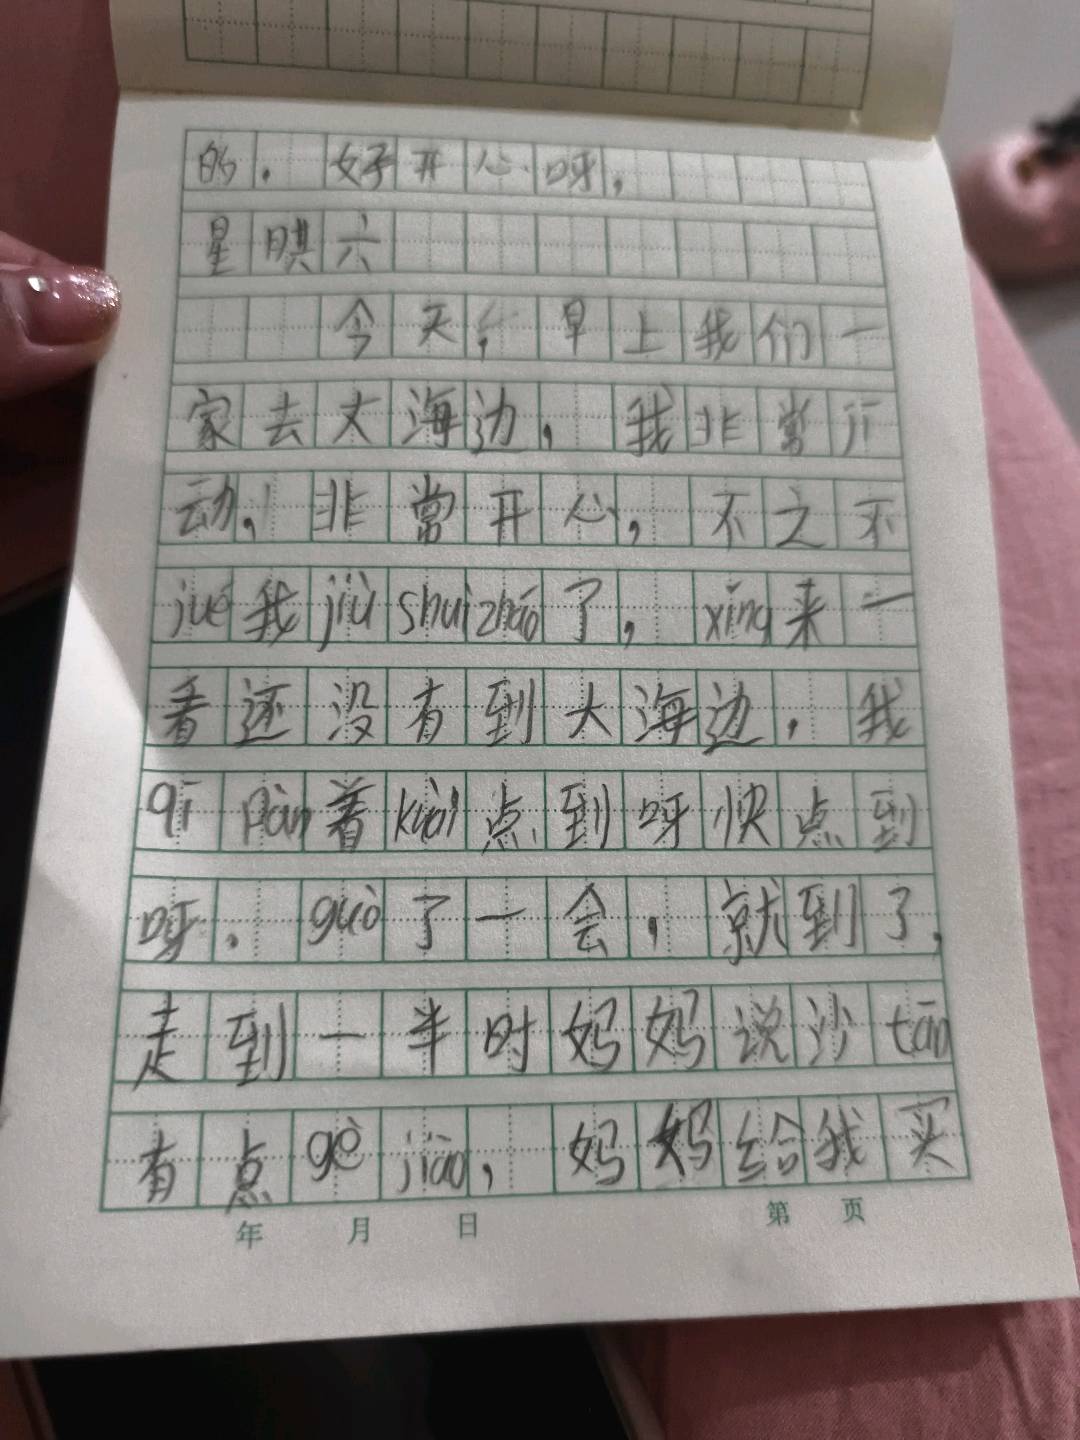 的．好开心呀，
星期六
今天，早上我们一
家去大海边，我非常jī
动，非常开心，不之不
jué我jiù shuizháo了，xǐng来一
看还没有到大海边．我
qī pàn着kuài点到呀快点到
呀．guò了一会，就到了，
走到一半时妈妈说沙tān
有点gè jiǎo，妈妈给我买
年 月 日 第 页